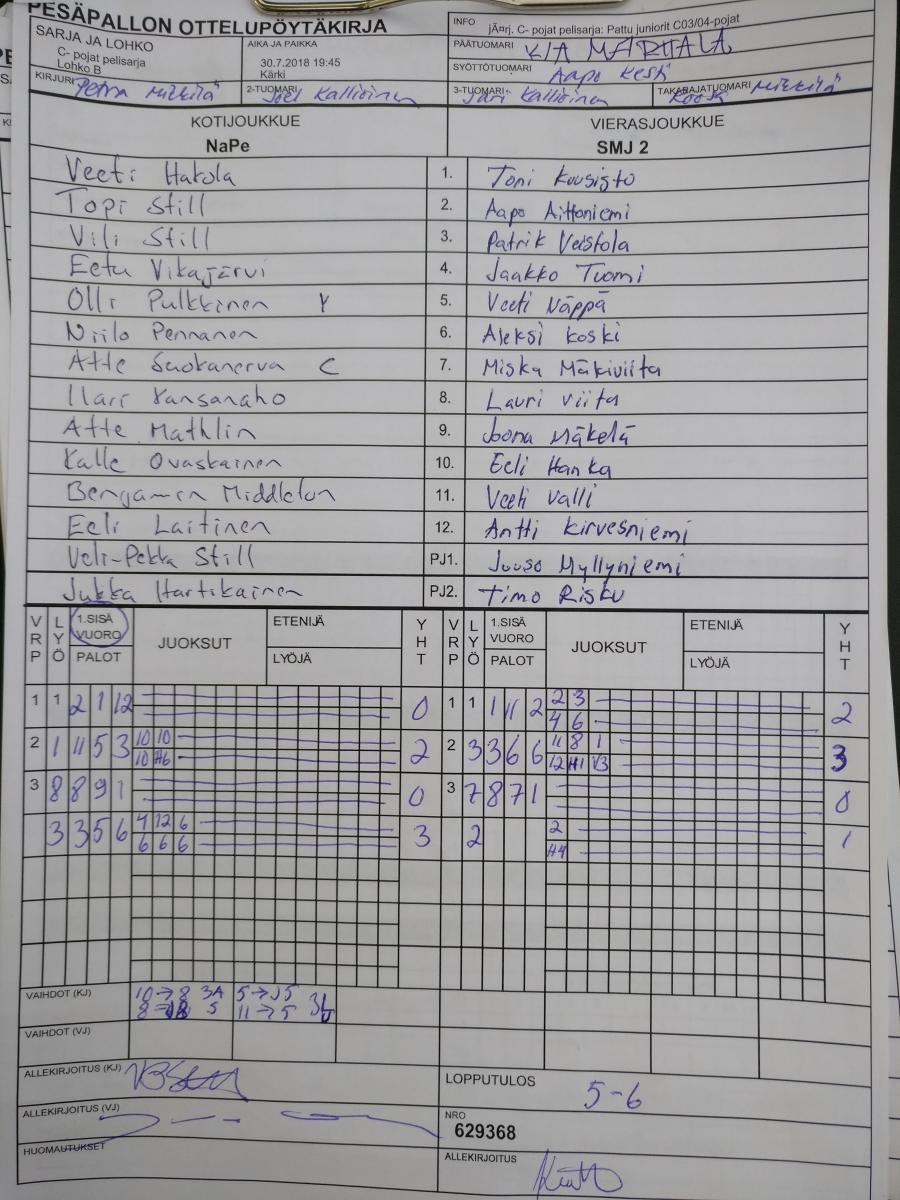 PESÄPALLON OTTELUPÖYTÄKIRJA
INFO
jÃ¤rj. C- pojat pelisarja: Pattu juniorit C03/04-pojat
SARJA JA LOHKO
C- pojat pelisarja
Lohko B
AIKA JA PAIKKA
30.7.2018 19:45
Kärki
PÄÄTUOMARI
SYÖTTÖTUOMARI Aapo Keski
KIRJURI Petra Mikkilä
2-TUOMARI Joel Kallioinen
3-TUOMARI Jari Kallioinen
TAKARAJATUOMARI Roosa Mikkilä
KOTIJOUKKUE VIERASJOUKKUE
NaPe SMJ 2
Veeti Hakola 1. Toni Kuusisto
Topi Still 2. Aapo Aittoniemi
Vili Still 3. Patrik Veistola
Eetu Vikajärvi 4. Jaakko Tuomi
Olli Pulkkinen Y 5. Veeti Näppä
Niilo Pennanen 6. Aleksi Koski
Atte Suokanerva C 7. Miska Mäkiviita
Ilari Kansanaho 8. Lauri Viita
Atte Mathlin 9. Joona Mäkelä
Kalle Ovaskainen 10. Eeli Hanka
Bengamin Middleton 11. Veeti Valli
Eeli Laitinen 12. Antti Kirvesniemi
Veli-Pekka Still PJ1. Juuso Myllyniemi
Jukka Hartikainen PJ2. Timo Risku
VRP LYÖ 1.SISÄ VUORO PALOT JUOKSUT ETENIJÄ LYÖJÄ YHT VRP LYÖ 1.SISÄ VUORO PALOT JUOKSUT ETENIJÄ LYÖJÄ YHT
1 1 2 1 12 0 1 1 1 11 2 2 3 2
4 6
2 1 11 5 3 10 10 2 2 3 3 6 6 11 8 1 3
10 H6 12 H1 V3
3 8 8 9 1 0 3 7 8 7 1 0
3 3 5 6 4 12 6 3 2 2 1
6 6 6 H4
VAIHDOT (KJ) 10→8 3A 5→J5
11→5
VAIHDOT (VJ)
ALLEKIRJOITUS (KJ)
LOPPUTULOS 5-6
ALLEKIRJOITUS (VJ)
NRO
629368
HUOMAUTUKSET
ALLEKIRJOITUS